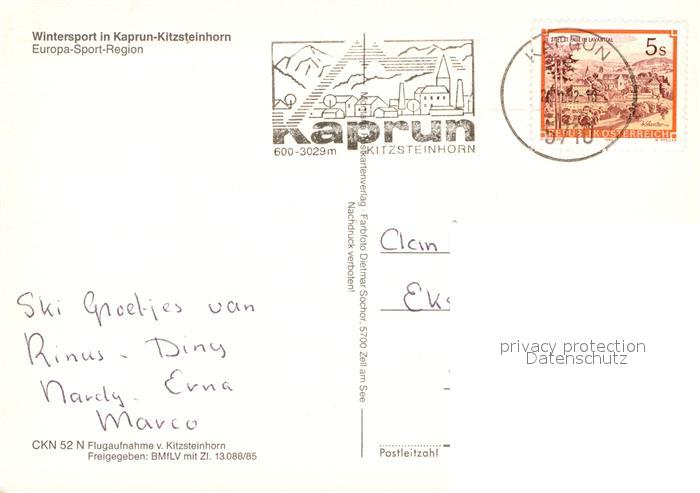 Wintersport in Kaprun-Kitzsteinhorn
Europa-Sport-Region
Kaprun
600-3029m KITZSTEINHORN
KAPRUN
5710
STIFT ST. PAUL IN LAVANTTAL
5s
REPUBLIK ÖSTERREICH
Postkartenverlag · Farbfoto Dietmar Sochor, 5700 Zell am See
Nachdruck verboten!
Ski Groetjes van
Rinus - Diny
Nardy - Erna
Marco
CKN 52 N Flugaufnahme v. Kitzsteinhorn
Freigegeben: BMfLV mit Zl. 13.088/85
Clan
Eks
privacy protection
Datenschutz
Postleitzahl